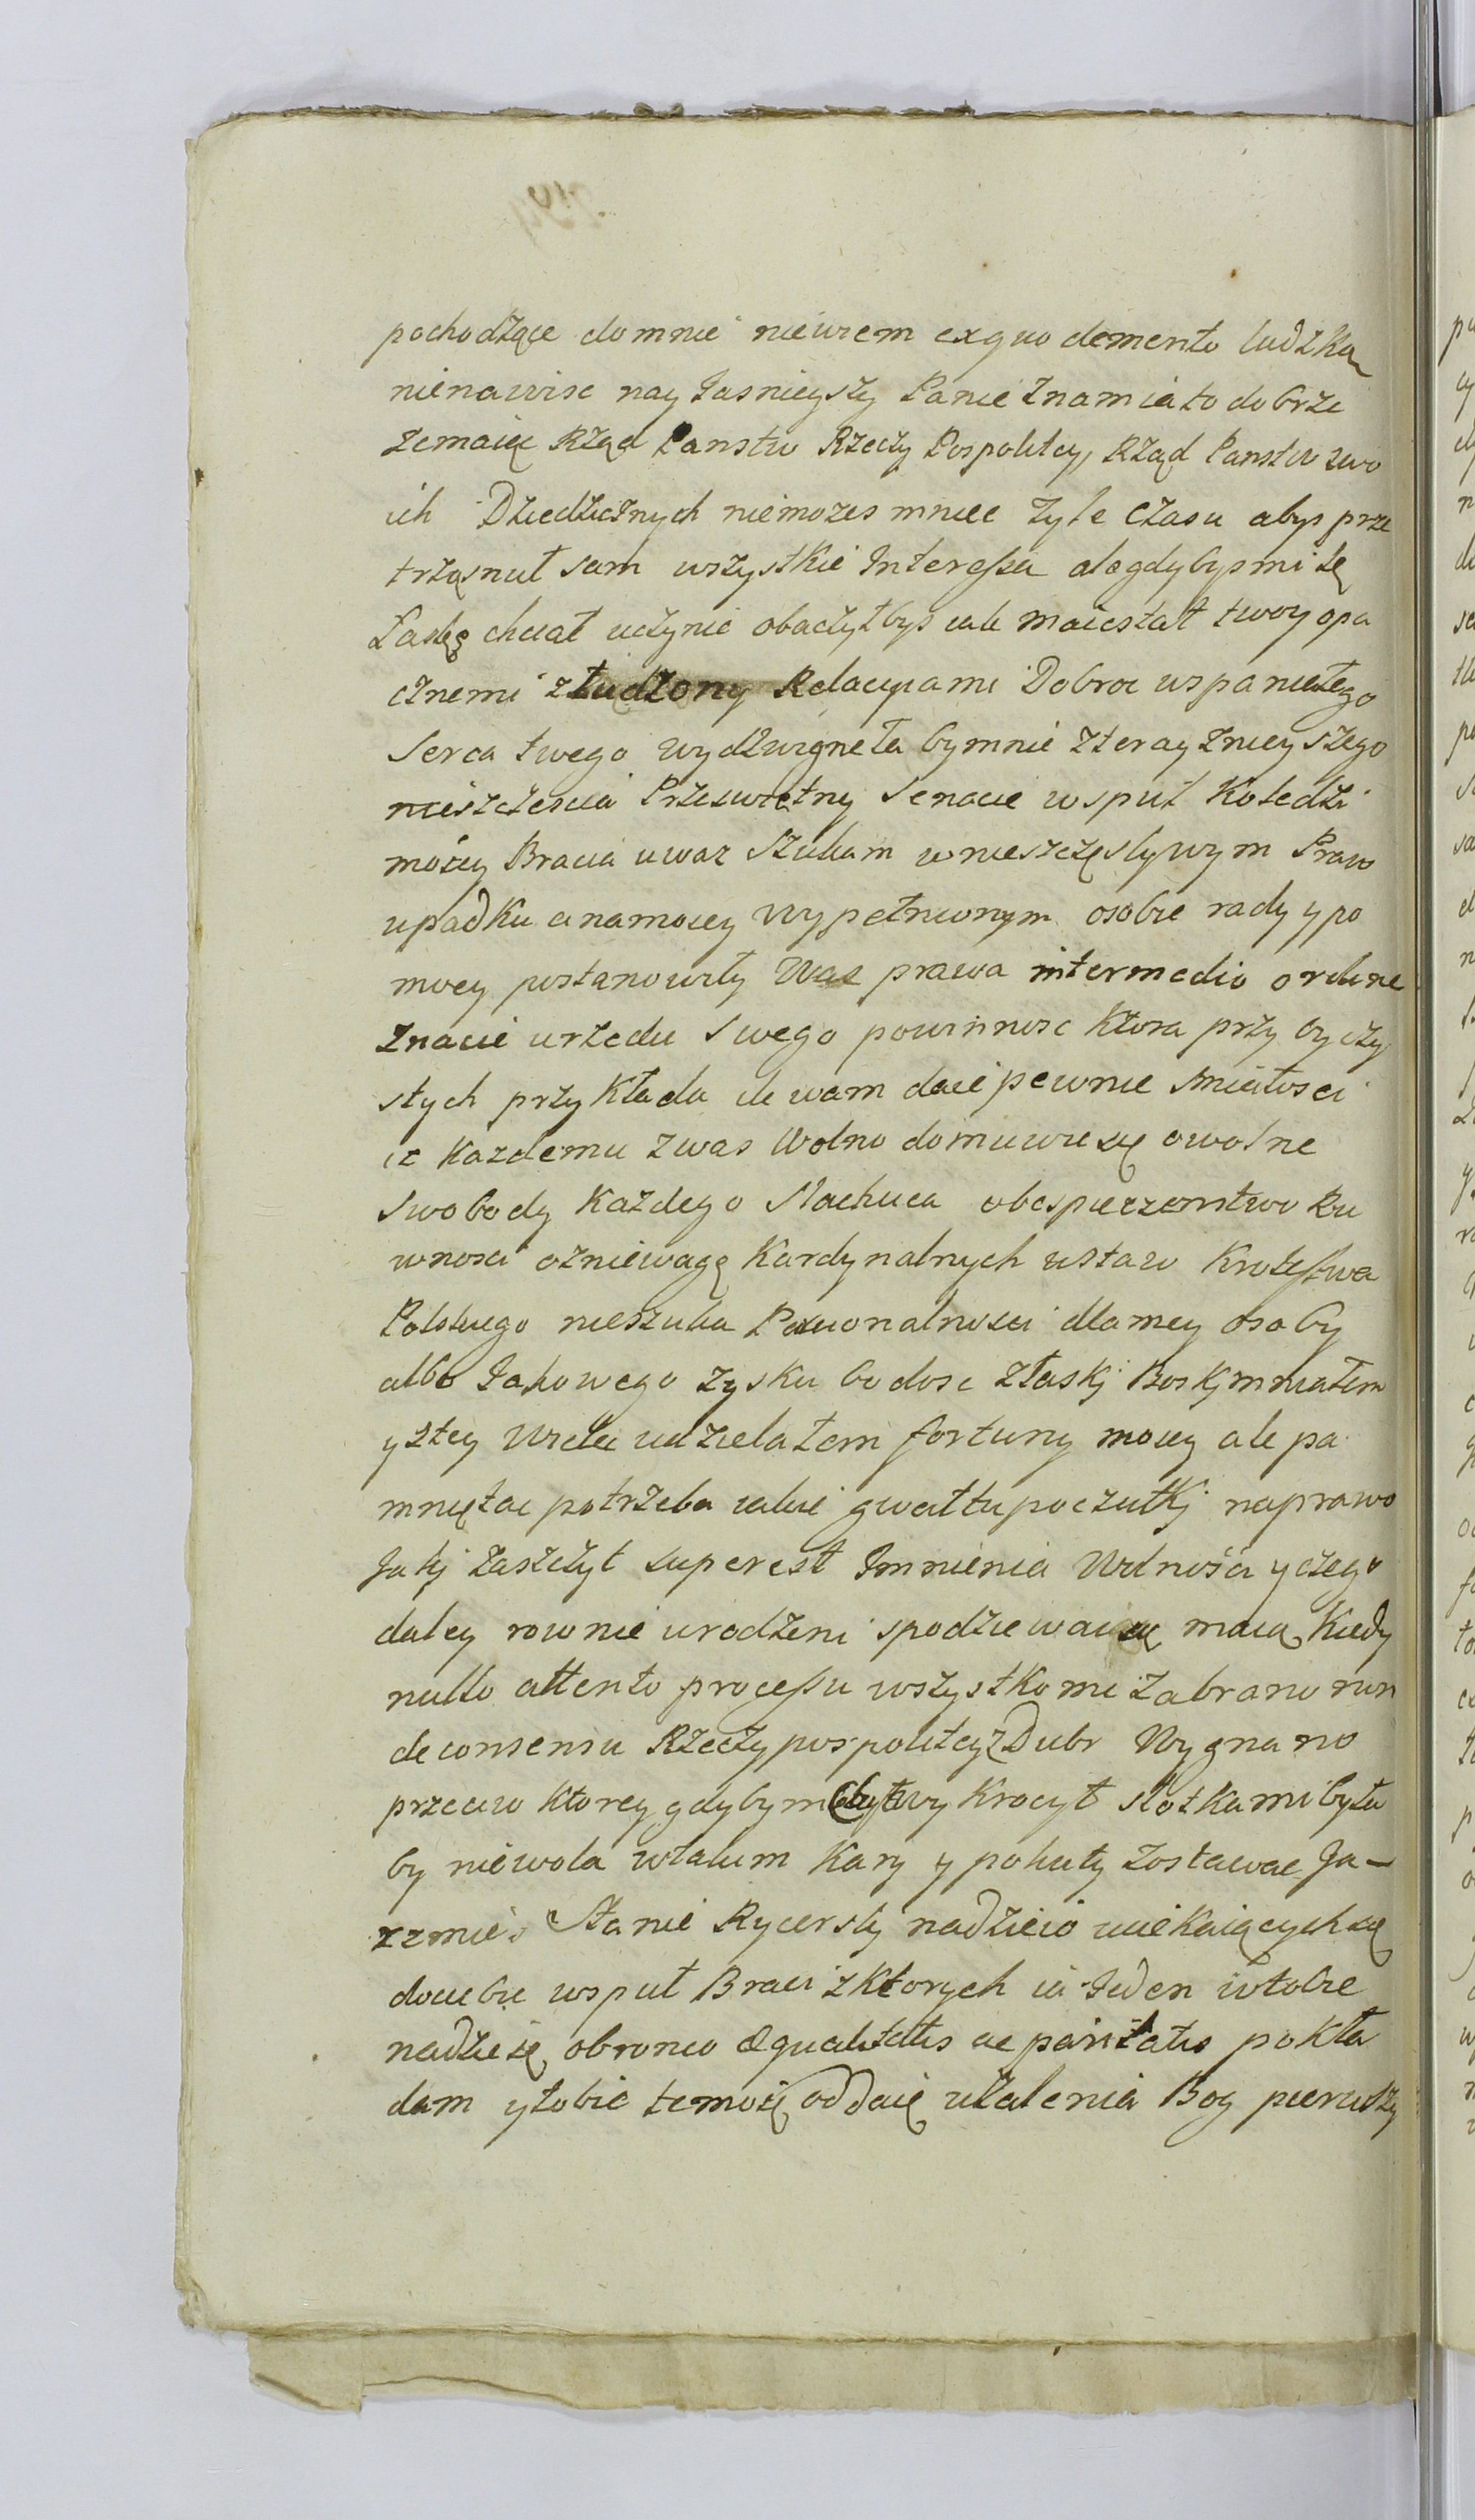 pochodzące domnie niewiem exquo demento ludzka
nienawisc nay Jasnieyszy Panie Znamia to dobrze
zemaiąc Rząd Panstw Rzeczy Pospolitey, Rząd Panstw swo
ich Dziedzicznych niemozes mniec tyle czasu abys prze
trząsnuł sam wszystkie Interessa alegdybysmi tę
Łaskę chciał uczynic obaczyłbys iak maiestat twoy opa
cznemi złudzony Relacyiami Dobroc wspaniałego
Serca twego wydzwigneła bymnie zterayznieyszego
nieszczescia Przeswietny Senacie wspuł Koledzi
moiey Bracia uwaz szukam wnieszczęslywym Praw
upadku a namoiey wypełnionym osobie rady y po
mocy postanowiły Was prawa intermedio ordine
Znacie urzedu Swego powinnosc Ktora przy oyczy
stych przykłada ile wam daie pewnie smiałosci
iz Kazdemu zwas Wolno domuwic się owolne
Swobody Kazdego Slachcica obespieczenstwo Ru
wnosci ozniewagę Kardynalnych ustaw Krolestwa
Polskiego nieszuka Passionalnosci dla mey osoby
albo Jakowego zysku bo dosc złaskj Boskj mniałem
y ztey Wiele udzielałem fortuny moiey ale pa
mniętac potrzeba iakie gwałtu poczutkj na prawo
Jakj zaszczyt superest Imnienia Wolnosci y czego
daley rownie urodzeni spodziewac się maią Kiedy
nullo attento processu wszystko mi zabrano nun
de consensu Rzeczypospolitey z Dubr Wygnano
przeciw Ktorey gdybym wykrocył slotkami była
by niewola wtakim Kary y pokuty zostawac Ja-
rzmie. Stanie Rycersky nadzieio uciekaiącychsię
dociebie wspuł Braci z Ktorych ia Jeden wtobie
nadzieię obronio æqualitatis ac paritatis pokła
dam ytobie temoię oddaię uzalenia Bog pierwszy